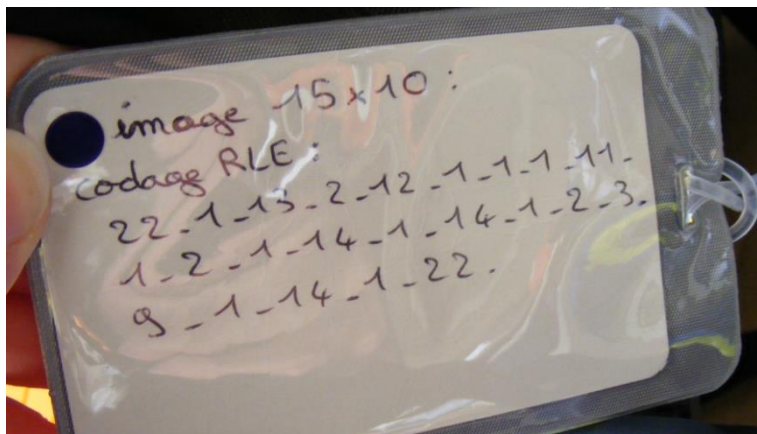 image 15x10 :
codage RLE :
22_1_13_2_12_1_1_1_11_
1_2_1_14_1_14_1_2_3_
9_1_14_1_22.